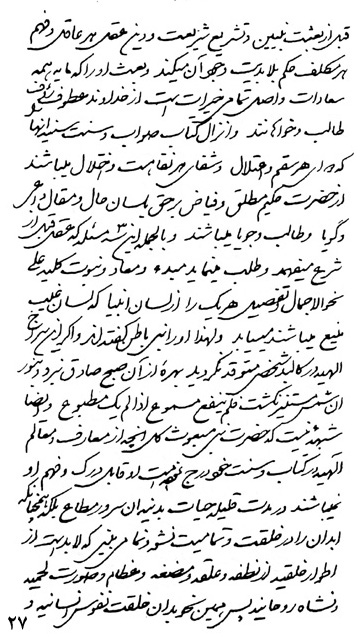 قبل از بعثت نبیین و تشریع شریعت و دین عقل هر عاقل و فهم
هر مکلف حکم بلابدیت و وجوب آن میکند و بعثت او را که مایه همه
سعادات و اصل تمامی خیرات است از خداوند عطوف رؤف
طالب و خواهانند و انزال کتاب صواب و سنت سنیه آنها
که دوای هر سقم و اعتلال و شفای هر نقاهت و اختلال میباشند
از حضرت حکیم مطلق و فیاض برحق بلسان حال و مقال داعی
و گویا و طالب و جویا میباشند و بالجمله این ۳ مسئله که عقل قبل از
شرع میفهمد و طلب مینماید مبدء و معاد و نبوت کلیه علی
نحو الاجمال و تفصیل هر یک را از لسان انبیا که لسان غیب
منیع میباشند مییابد و لهذا او را نبی باطن گفته‌اند و اگر این سراج
الهیه در کالبد شخص متوقد نگردید بهرهٔ از آن صبح صادق نبرد و بنور
آن شمس مستنیر نگشت فلم ینفع مسموع اذا لم یک مطبوع و ایضا
شبهه نیست که حضرت نبی مبعوث کل آنچه از معارف و معالم
الهیه در کتاب و سنت خود درج نموده است او قابل درک و فهم او
نمیباشند در مدت قلیله حیات بدنیه آن سرور مطاع بلکه همچنانکه
ابدان را در خلقت و تمامیت نشو و نما می‌بینی که لابد است از
اطوار خلقیه از نطفه و علقه و مضغه و عظام و صورت لحمیه
و نشاه روحانیه پس همین نحو بدان خلقت نفوس انسانیه و
۲۷